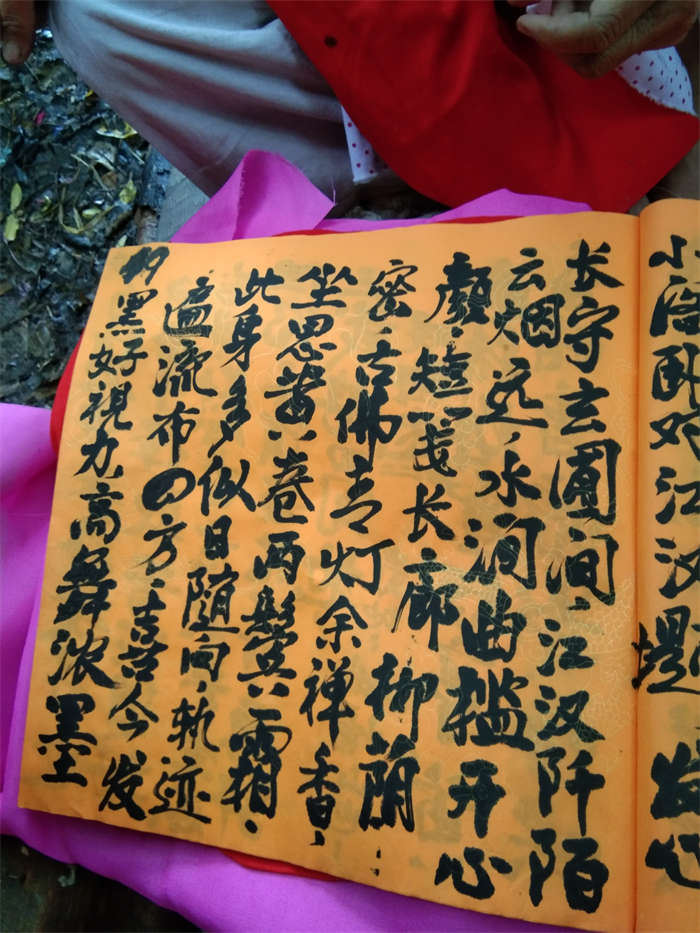 小卧江汐堤发心
长守玄圃间,江汉阡陌
云烟远,水涧曲槛开心
颜,短长廊柳荫
密,古佛青灯余禅香,
坐思黄卷两鬓共霜.
此身多似日随向,轨迹
遍流布四方.今发
黑好視力,高舞浓墨